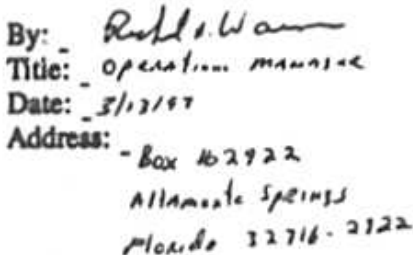 By:
Title: Operations Manager
Date: 3/13/97
Address:
Box 162922
Altamonte Springs
Florida 32716-2922